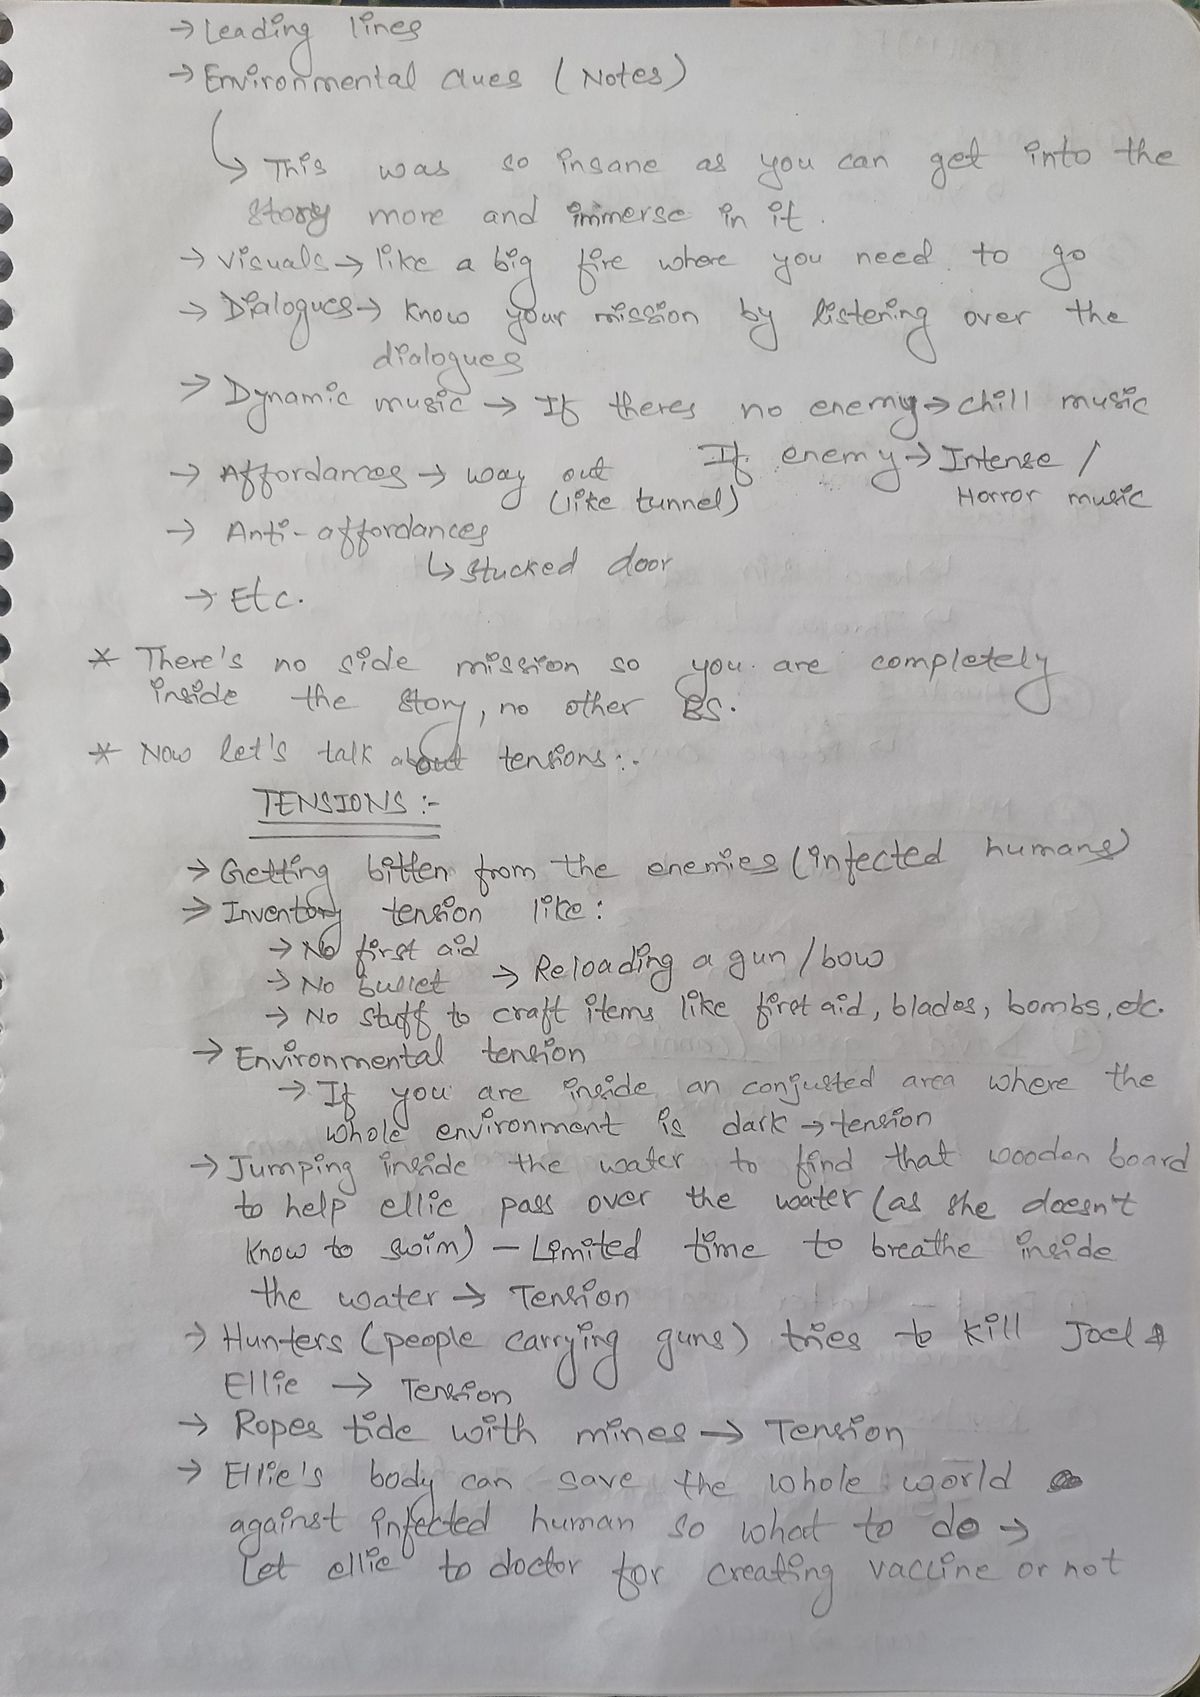 → Leading lines
→ Environmental clues (Notes)
↳ This was so insane as you can get into the
story more and immerse in it.
→ Visuals → like a big fire where you need to go
→ Dialogues → Know your mission by listening over the
dialogues
→ Dynamic music → If theres no enemy → chill music
If enemy → Intense /
Horror music
→ Affordances → way out
(like tunnel)
→ Anti-affordances
↳ stucked door
→ Etc.
* There's no side mission so you are completely
inside the story, no other BS.
* Now let's talk about tensions:-
TENSIONS :-
→ Getting bitten from the enemies (infected humans)
→ Inventory tension like:
→ No first aid
→ No bullet → Reloading a gun / bow
→ No stuff to craft items like first aid, blades, bombs, etc.
→ Environmental tension
→ If you are inside an conjusted area where the
whole environment is dark → tension
→ Jumping inside the water to find that wooden board
to help ellie pass over the water (as she doesn't
know to swim) - Limited time to breathe inside
the water → Tension
→ Hunters (people carrying guns) tries to kill Joel &
Ellie → Tension
→ Ropes tide with mines → Tension
→ Ellie's body can save the whole world
against infected human so what to do →
Let ellie to doctor for creating vaccine or not